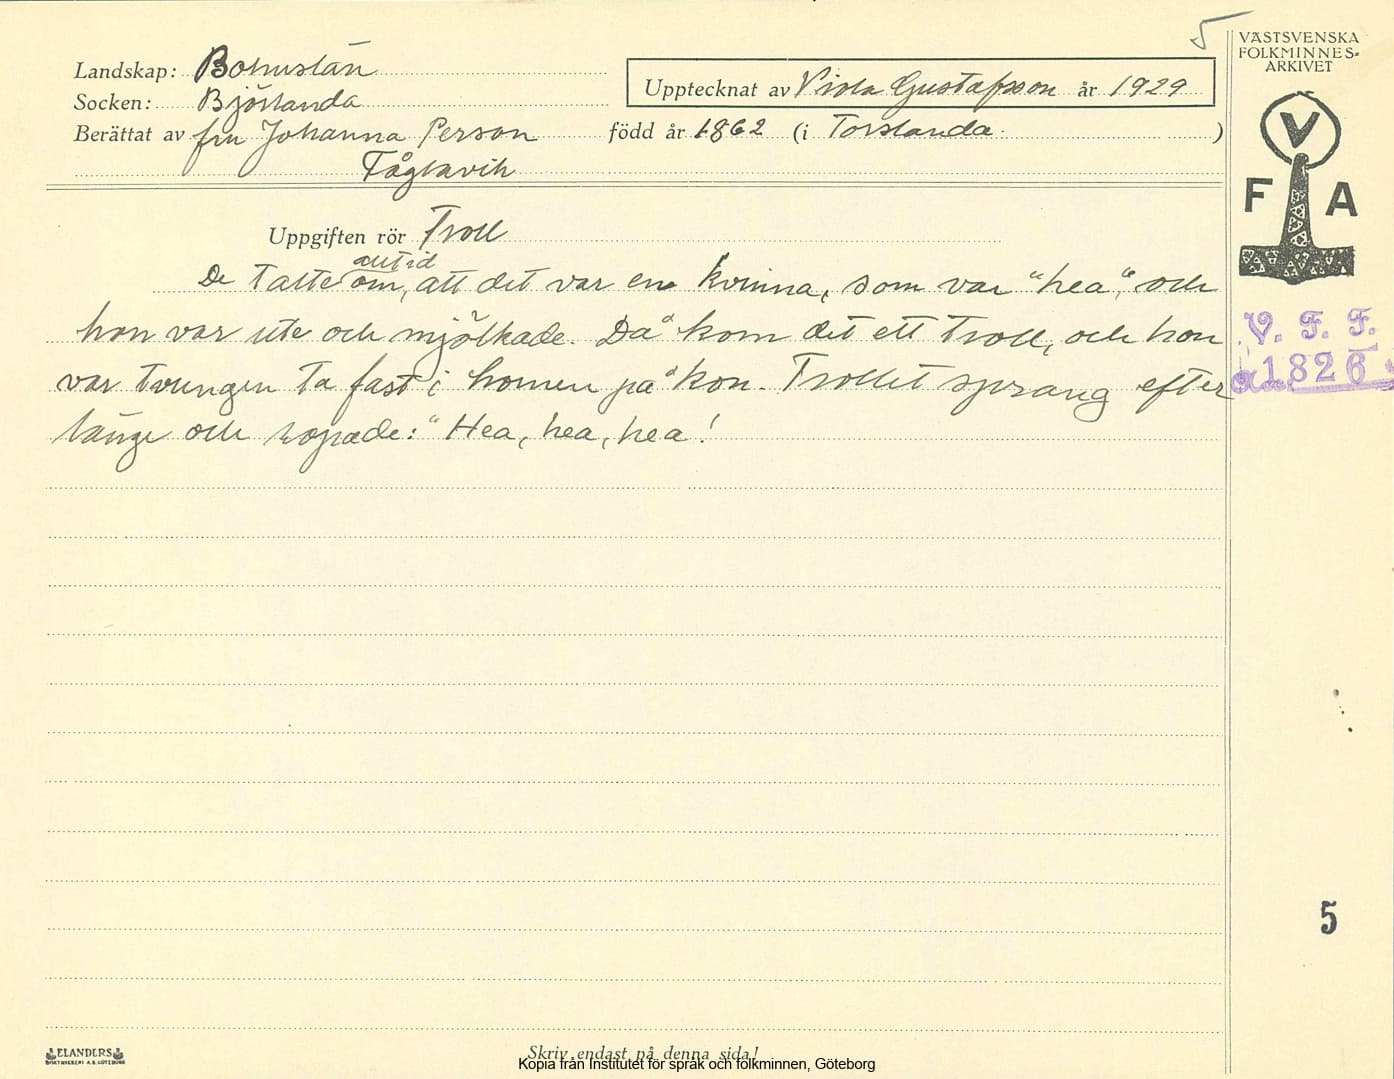 5
VÄSTSVENSKA
FOLKMINNES-
ARKIVET
Landskap: Bohuslän
Socken: Björlanda
Upptecknat av Viola Gustafsson år 1929
Berättat av fru Johanna Person född år 1862 (i Torslanda )
Fåglavik
V
F A
Uppgiften rör Troll
alltid
De talte om, att det var en kvinna, som var "hea", och
hon var ute och mjölkade. Då kom det ett troll, och hon
var tvungen ta fast i hornen på kon. Trollet sprang efter
länge och ropade: "Hea, hea, hea!
V. F. F.
1826
5
ELANDERS
BOKTRYCKERI A.B. GÖTEBORG
Skriv endast på denna sida!
Kopia från Institutet för språk och folkminnen, Göteborg